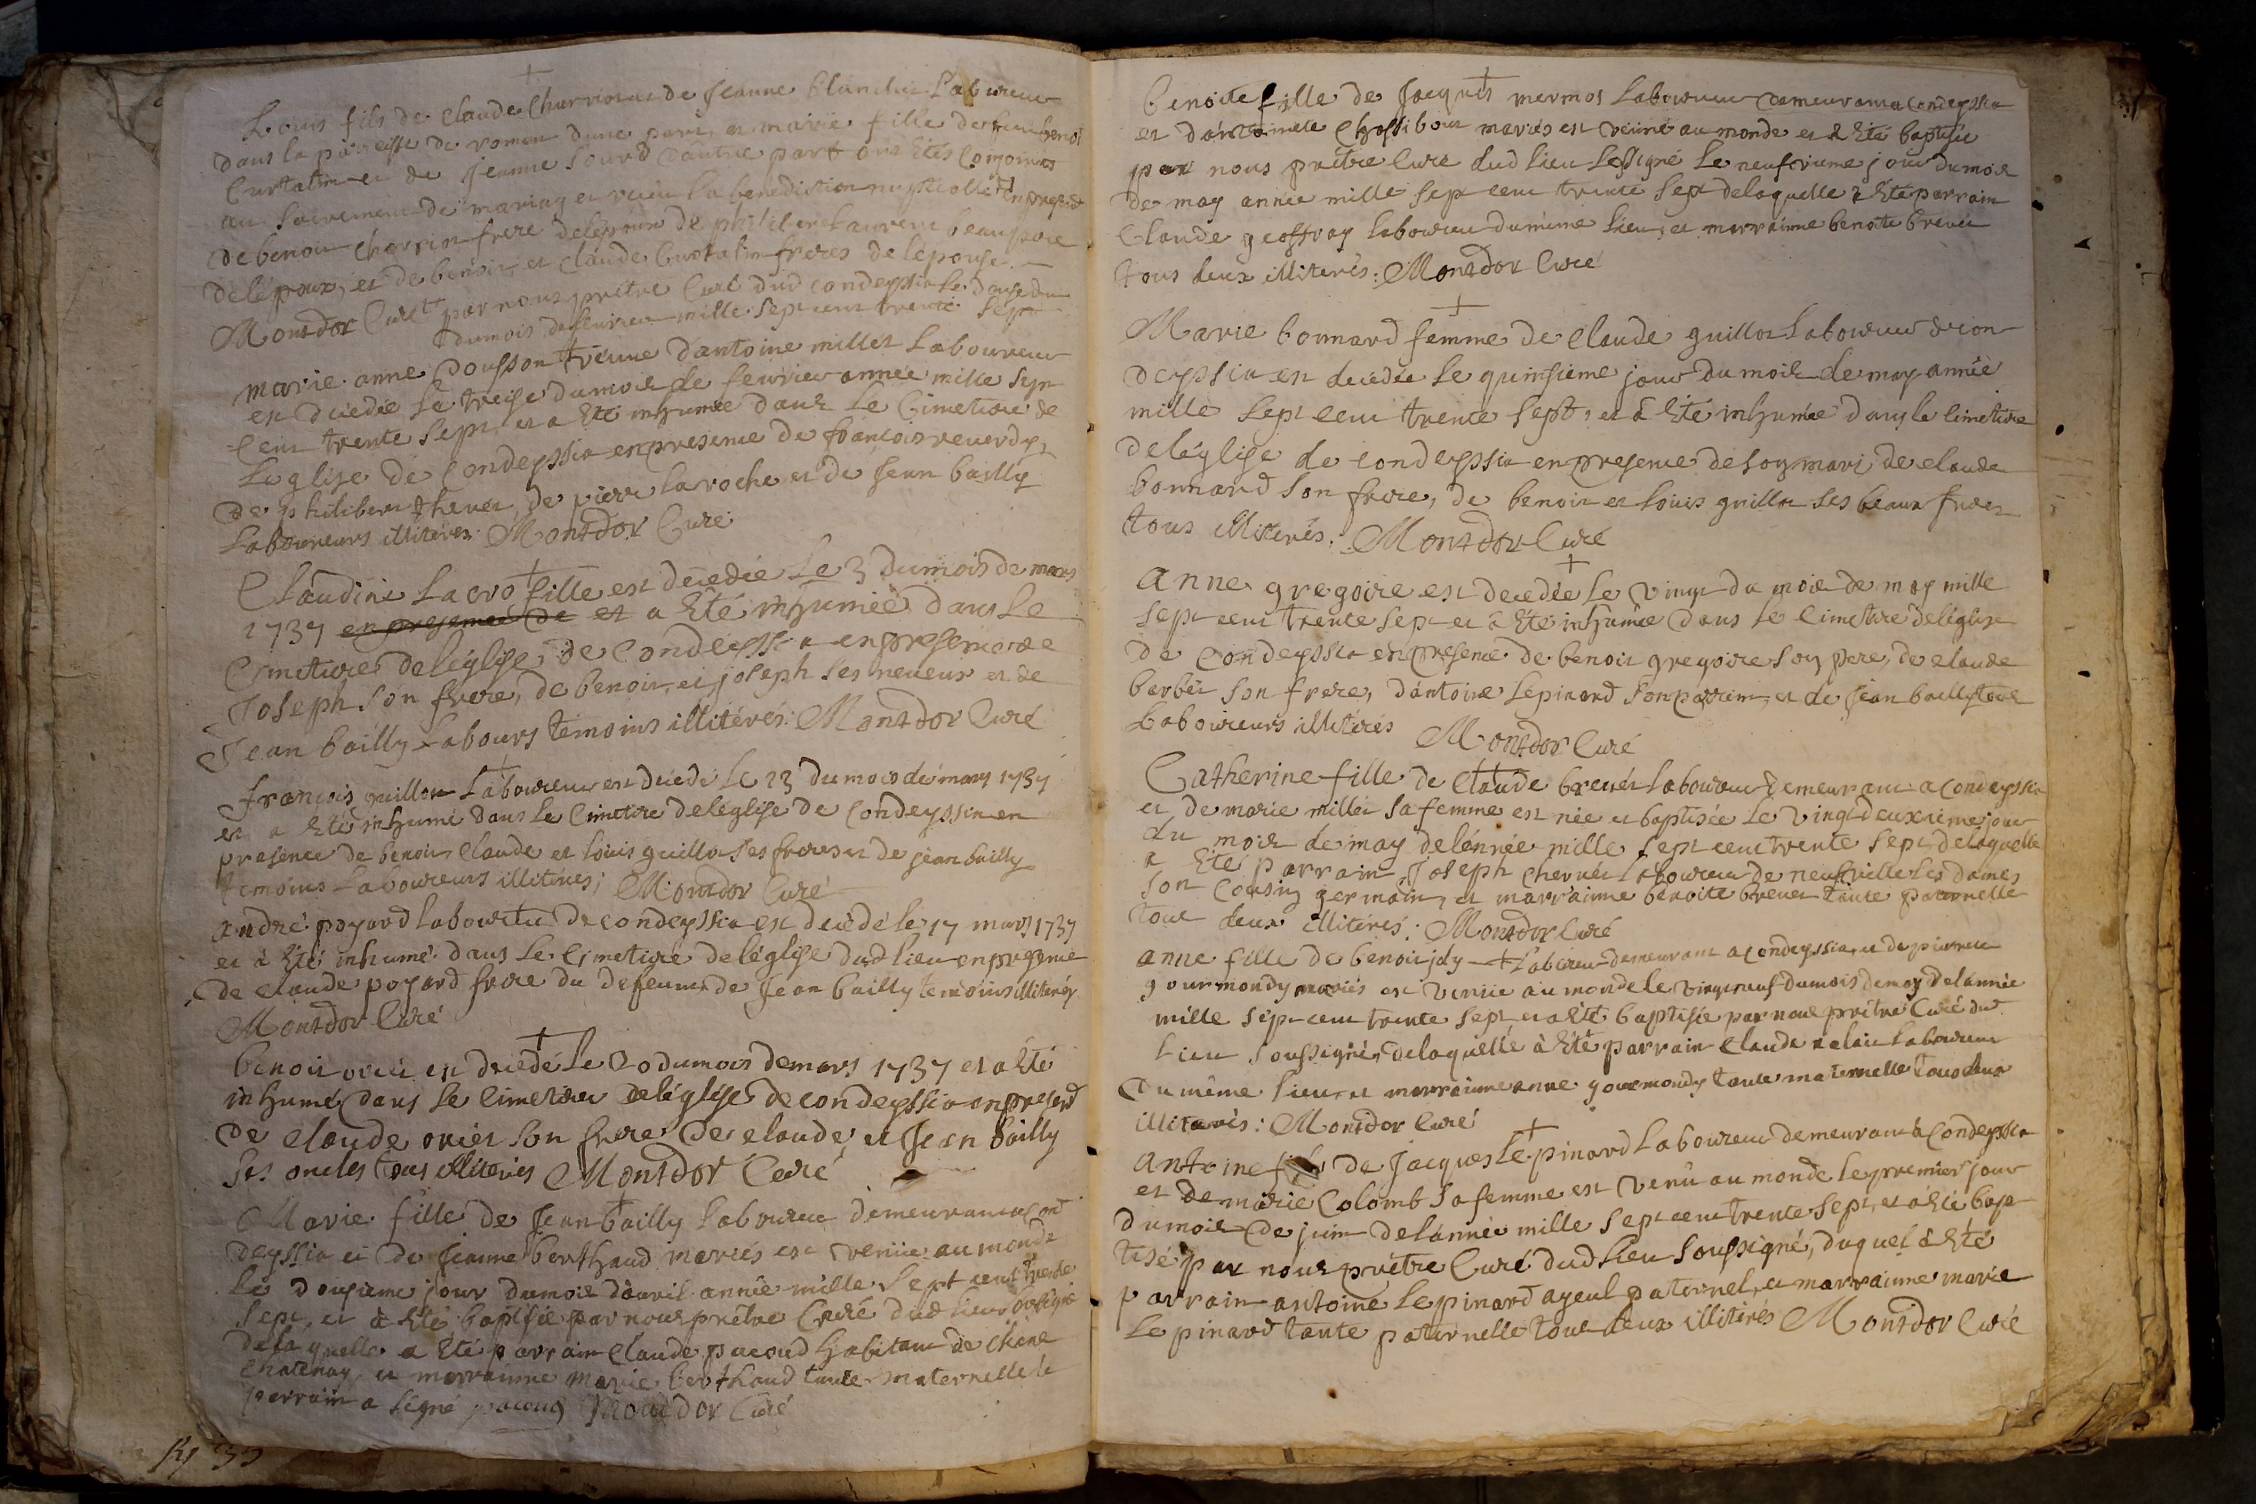 Louis fils de Claude Charvion et de Jeanne blanchet Laboureur
dans la paroisse de romans dune part, et marie fille de feu benoi
Curtalin et de Jeanne Sourd dautre part ont étés Conjoints
au Sacrement de mariag et reçu la benediction nuptialle en presen
de benoit frere de philibert Laurent beaupere
de lépoux, et de benoit et Claude Curtalin freres de lépouse
par nous prêtre Curé dud condeyssia le douze du
Montdor Curé dumois de fevrier mille sept cent trente sept
marie anne veuve dantoine millet Laboureur
est decedée le treise du mois de fevrier année mille sept
cent trente sept et a Eté inhumée dans Le Cimetiere de
Leglise de Condeyssia en presence de françois reverdy,
de philibert thevet, de pierre laroche et de Jean bailly
Laboureurs illiterés Montdor Curé
Claudine Lacro fille est decedée Le 3 du mois de mars
1737 en presence de et a Eté inhumée dans Le
Cimetiere de léglise de Condeyssia en presence de
Joseph son frere, de benoit, et joseph ses neveux et de
Jean bailly Labours temoins illitérés: Montdor Curé
françois guillot Laboureur est decedé le 13 du mois de mars 1737
et a Eté inhumé dans le Cimetiere de léglise de Condeyssia en
presence de benoit Claude et louis guillot ses freres et de jean bailly
temoins Laboureurs illiterés; Montdor Curé
andré poyard laboureur de condeyssia est decédé le 17 mars 1737
et à Eté inhumé dans le Cimetiere de léglise dud lieu en presence
de Claude poyard frere du defeunt de Jean bailly temoins illiterés
Montdor Curé
benoit est decedé Le 20 du mois de mars 1737 et a Eté
inhumé dans le Cimetiere de léglise de condeyssia en presend
de Claude son frere de Claude, et Jean bailly
ses oncles tous illiterés Montdor Curé
Marie fille de Jean bailly laboureur demeurant a con
deyssia et de Jeanne berthaud mariés est venüe au monde
le dousieme jour du mois davril année mille sept cent trente
sept, et à Eté baptisée par nous prêtre Curé dud lieu
de laquelle a Eté parrain Claude pacoud habitant de Chane
Chatenay et marrainne marie berthaud tante maternelle le
parrain a signé pacoud Montdor Curé
benoite fille de Jacques mermos laboureur demeurant a condeyssia
et dantoinette mariés est veüne au monde et à Eté baptisée
par nous prêtre Curé dud lieu le neufvieme jour du mois
de may année mille sept cent trente sept de laquelle à Eté parrain
Claude geoffray laboureur du même lieu, et marrainne benoite brevet
tous deux illiterés: Montdor Curé
Marie bonnard femme de Claude guillot laboureur de con
deyssia est decédée le quinsieme jour du mois de may année
mille sept cent trente sept, et à Eté inhumée dans le cimetiere
de léglise de condeyssia en presence de son mari de claude
bonnard son frere, de benoit et louis guillot ses beaux freres
tous illiterés. Montdor Curé
anne gregoire est decedée le vingt du mois de may mille
sept cent trente sept et à Eté inhumée dans le Cimetiere de léglise
de Condeyssia en presence de benoit gregoire son pere, de claude
barbet son frere, dantoine Lepinard son parrain, et de Jean bailly tous
Laboureurs illiterés Montdor Curé
Catherine fille de Claude brevet laboureur demeurant a condeyssia
et de marie millet sa femme est née et baptisée le vingt deuxieme jour
du mois de may de lénnée mille sept cent trente sept de laquelle
a Eté parrain Joseph chervet laboureur de neufville les dames
son Cousin germain, et marrainne benoite brevet tante paternelle
tous deux illitérés: Montdor Curé
anne fille de benoit joly Laboureur demeurant a condeyssia, et de pierrette
gourmondy mariés est venüe au monde le vingt neuf du mois de may de lannée
mille sept cent trente sept et a été baptisée par nous prêtre Curé dud
lieu soussigné, de laquelle à Eté parrain Claude laboureur
du même lieu, et marrainne anne gourmondy tante maternelle tous deux
illiterés: Montdor Curé
Antoine fils de Jacques Le pinard laboureur demeurant à Condeyssia
et de marie Colomb sa femme est venû au monde le premier jour
du mois de juin de lannée mille sept cent trente sept, et a Eté bap
tisé par nous prêtre Curé dud lieu soussigné, duquel à Eté
parrain antoine Lepinard ayeul paternel, et marrainne marie
Le pinard tante paternelle tous deux illitérés Montdor Curé